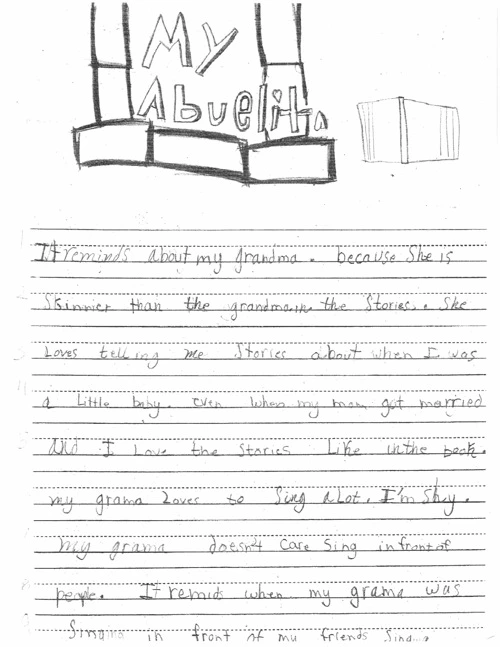 My
Abuelita
It reminds about my grandma. because She is
Skinnier than the grandma in the Stories. She
Loves telling me Stories about when I was
a Little baby. even when my mom got married
and I Love the Stories Like in the book.
my grama Loves to Sing aLot. I'm Shy.
my grama doesn't Care Sing infront of
people. It remids when my grama was
Singing in front of my friends Singing